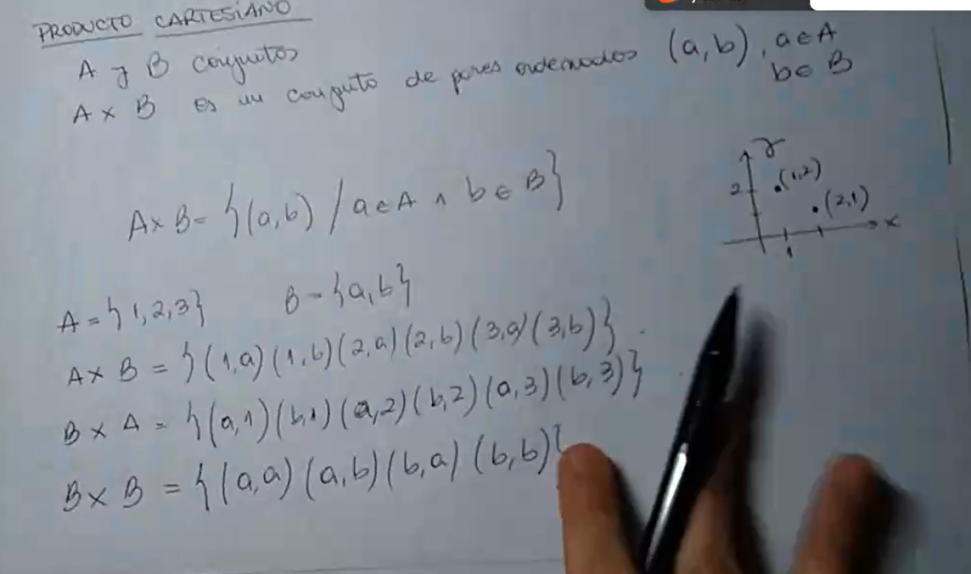 PRODUCTO CARTESIANO
A y B conjuntos
A x B es un conjunto de pares ordenados (a,b), a∈A
b∈B
AxB = {(a,b) / a∈A ∧ b∈B}
y
2 (1,2)
(2,1)
x
1
A = {1,2,3} B = {a,b}
A x B = {(1,a)(1,b)(2,a)(2,b)(3,a)(3,b)}
B x A = {(a,1)(b,1)(a,2)(b,2)(a,3)(b,3)}
B x B = {(a,a)(a,b)(b,a)(b,b)}